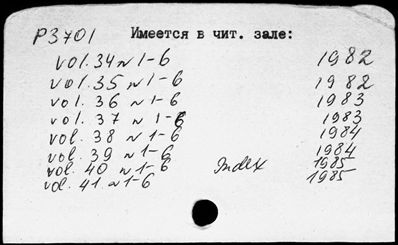 P3701 Имеется в чит. зале:
vol. 34 N 1-6 1982
vol. 35 N 1-6 1982
vol. 36 N 1-6 1983
vol. 37 N 1-6 1983
vol. 38 N 1-6 1984
vol. 39 N 1-6 1984
vol. 40 N 1-6 Index 1985
vol. 41 N 1-6 1985